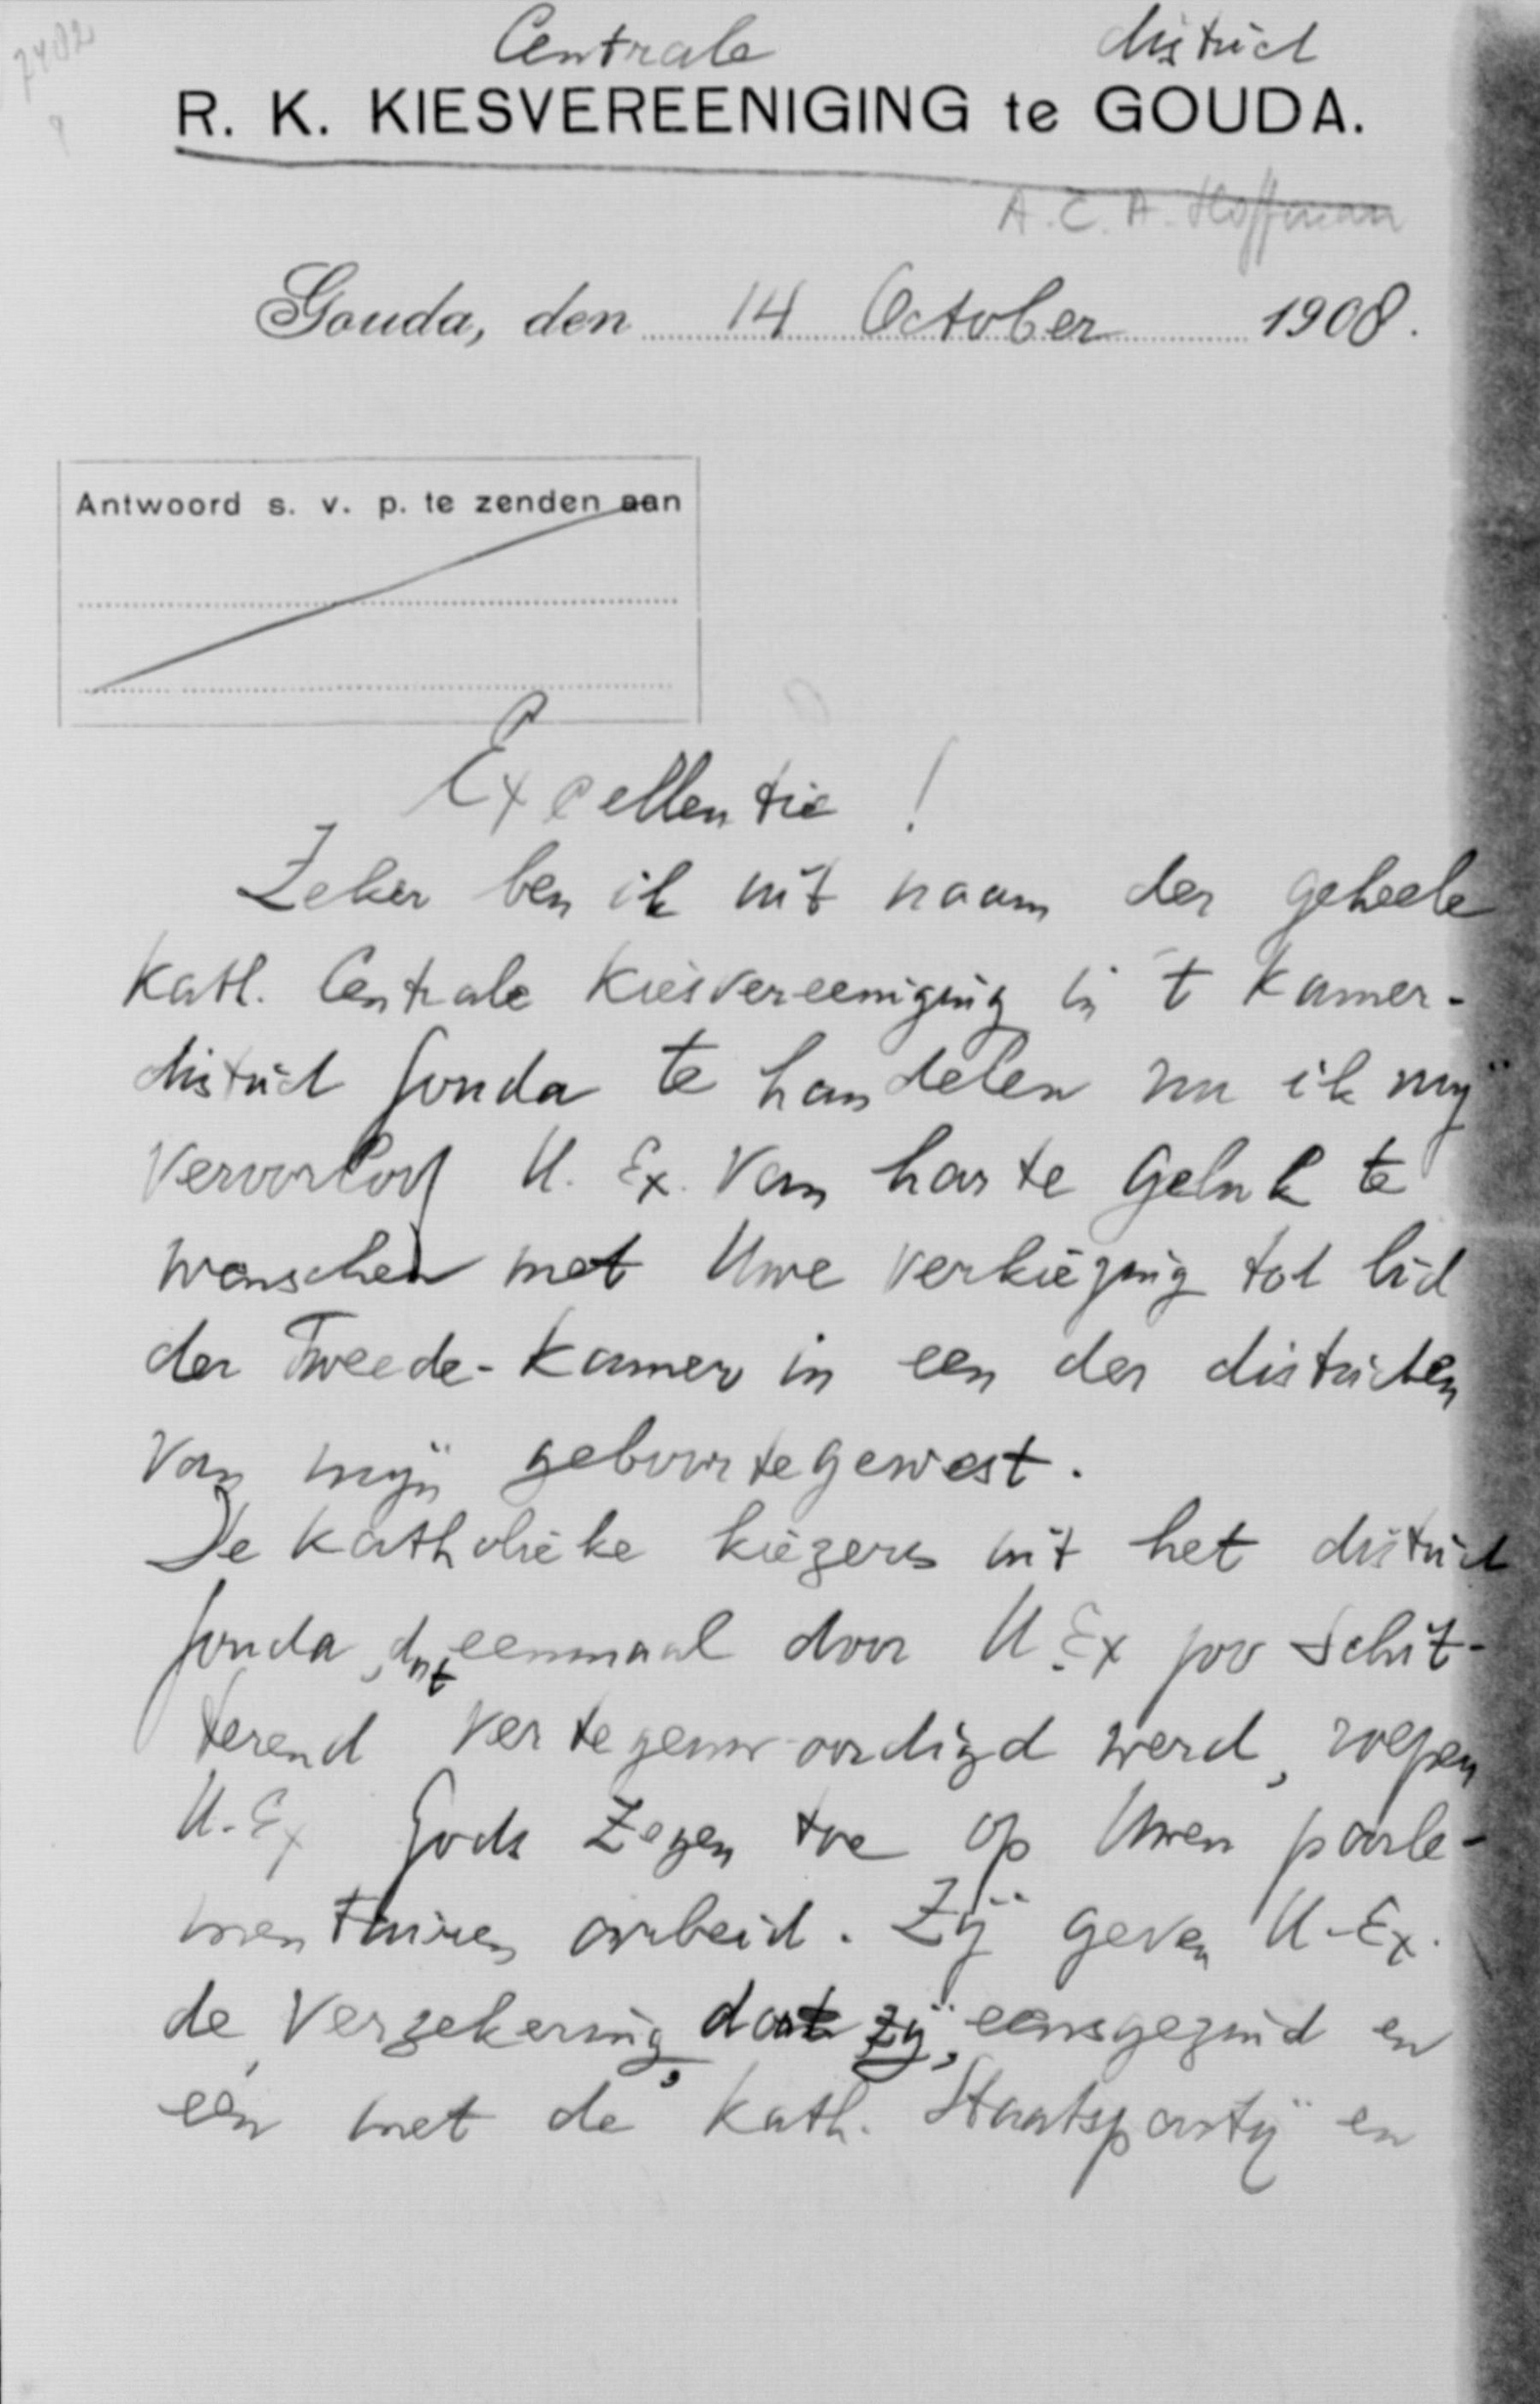 7402
9
Centrale district
R. K. KIESVEREENIGING te GOUDA.
A. C. A. Hoffman
Gouda, den 14 October 1908.
Antwoord s. v. p. te zenden aan
Excellentie !
Zeker ben ik uit naam der geheele
Kath. Centrale Kiesvereeniging in 't Kamer-
district Gouda te handelen nu ik mij
veroorloof U. Ex. van harte geluk te
wenschen met Uwe verkiezing tot lid
der Tweede-Kamer in een der districten
van mijn geboortegewest.
De katholieke kiezers uit het district
Gouda, dat eenmaal door U. Ex zoo schit-
terend vertegenwoordigd werd, roepen
U. Ex Gods Zegen toe op Uwen parle-
mentairen arbeid. Zij geven U. Ex.
de verzekering, dat zij, eensgezind en
één met de Kath. Staatspartij en